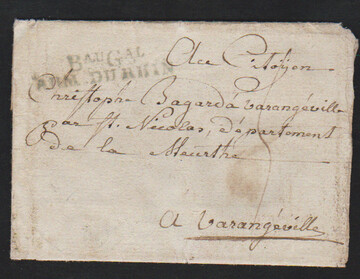 Bau Gal
ARM. DU RHIN
Au Citoyen
Christophe Bagard à Varangéville
par St. Nicolas, département
De la Meurthe
A Varangéville